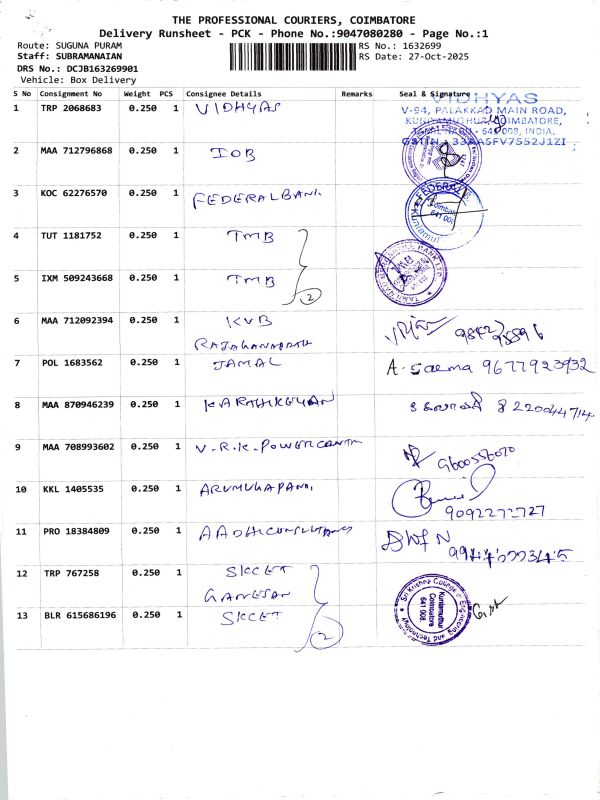 THE PROFESSIONAL COURIERS, COIMBATORE
Delivery Runsheet - PCK - Phone No.:9047080280 - Page No.:1
Route: SUGUNA PURAM
RS No.: 1632699
Staff: SUBRAMANAIAN
RS Date: 27-Oct-2025
DRS No.: DCJB163269901
Vehicle: Box Delivery
S No Consignment No Weight PCS Consignee Details Remarks Seal & Signature
1 TRP 2068683 0.250 1 VIDHYAS
VIDHYAS
V-94, PALAKKAD MAIN ROAD,
KUNIYAMUTHUR, COIMBATORE,
TAMIL NADU - 641 008, INDIA.
GSTIN : 33AASFV7552J1ZI
2 MAA 712796868 0.250 1 IOB
3 KOC 62276570 0.250 1 FEDERAL BANK
FEDERAL
641 008
4 TUT 1181752 0.250 1 TMB
5 IXM 509243668 0.250 1 TMB
2
6 MAA 712092394 0.250 1 KVB
7 POL 1683562 0.250 1 JAMAL A. Saema 9677923932
8 MAA 870946239 0.250 1 KARTHIKEYAN 8220044714
9 MAA 708993602 0.250 1 V.R.K. POWER
10 KKL 1405535 0.250 1 ARUMUGAPANI
9092272727
11 PRO 18384809 0.250 1 AADHI CONSULTANS
12 TRP 767258 0.250 1 SKCET
GANESAN
13 BLR 615686196 0.250 1 SKCET
2
Sri Krishna College of Engineering and Technology
Kuniamuthur
Coimbatore
641 008